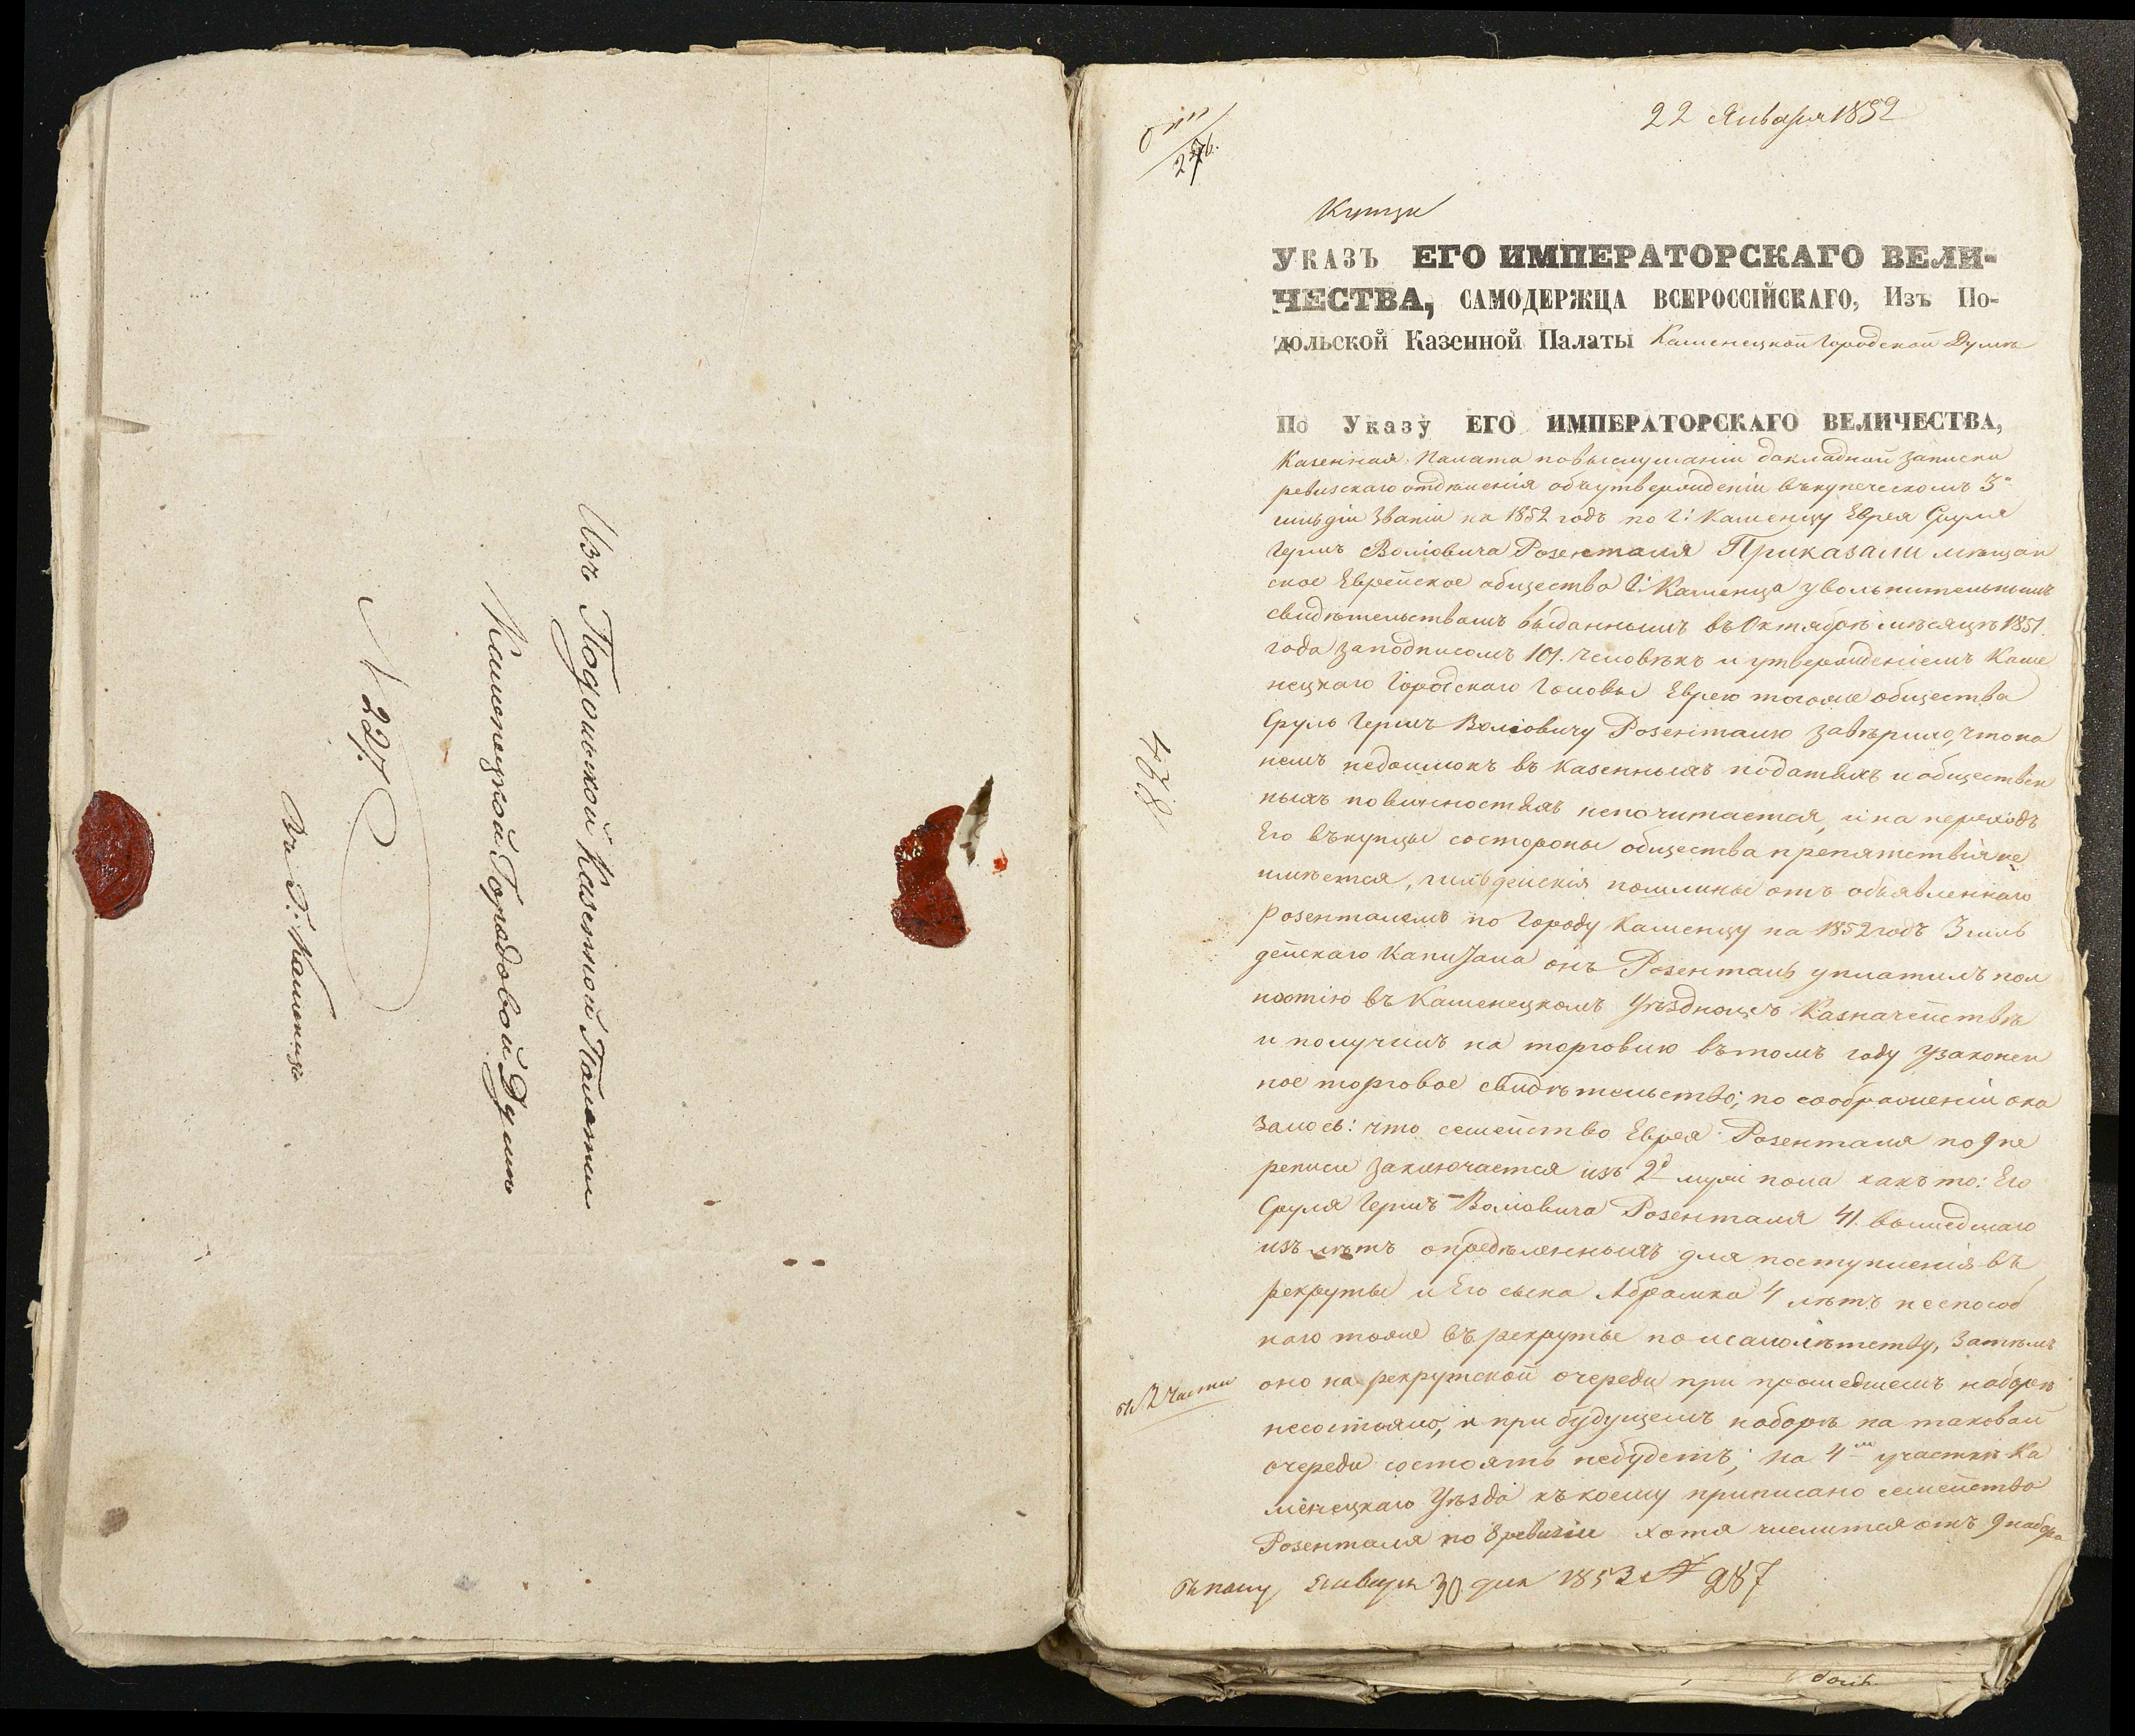 Изъ Подольской Казенной Палаты
Каменецкой Городовой Думѣ
№ 227.
Въ Г. Каменецъ
22 Января 1852
Купцы
Указъ ЕГО ИМПЕРАТОРСКАГО ВЕЛИ-
ЧЕСТВА, САМОДЕРЖЦА ВСЕРОССІЙСКАГО, Изъ По-
дольской Казенной Палаты Каменецкой Городской Думѣ
По Указу ЕГО ИМПЕРАТОРСКАГО ВЕЛИЧЕСТВА,
Казенная Палата повыслушаніи докладной записки
ревизскаго отдѣленія обѣутвержденіи въкупеческомъ 3й
гильдіи званіи на 1852 годъ по г: Каменцу Еврея Сруля
Гершъ Волѣовича Розенталя Приказали мѣщан
ское Еврейское общество г: Каменца увольнительнымъ
свидѣтельствомъ выданнымъ въ Октябрѣ мѣсяцѣ 1851.
года заподписомъ 101. человѣкъ и утвержденіемъ Каме
нецкаго Городскаго Головы Еврею тогоже общества
Сруль Гершъ Волѣовичу Розенталю завѣрило, что на
немъ недоимокъ въ казенныхъ податяхъ и обществен
ныхъ повинностяхъ непочитается, и на переходъ
Его въкупцы состороны общества препятствія не
имѣется, гильдейскія пошлины отъ объявленнаго
Розенталемъ по городу Каменцу на 1852 годъ 3 гиль
дейскаго Капитала онъ Розенталь уплатилъ пол
ностію въ Каменецкомъ Уѣздномъ Казначействѣ
и получилъ на торговлю вътомъ году узаконен
ное торговое свидѣтельство; по соображеніи ока
залось: что семейство Еврея Розенталя по 9 пе
реписи заключается изъ 2х муж: пола какъ то: Его
Сруля Гершъ Волѣовича Розенталя 41. вышедшаго
изъ лѣтъ опредѣленныхъ для поступленія въ
рекруты и Его сына Абрамка 4 лѣтъ неспособ
наго тоже въ рекруты по малолѣтству, затѣмъ
оно на рекрутской очереди при прошедшемъ наборѣ
несостояло, и при будущемъ наборѣ на таковой
очереди состоять небудетъ; на 4м участкѣ Ка
менецкаго Уѣзда къкоему приписано семейство
Розенталя по 8 ревизіи хотя числится отъ 9 набора
438
Января 30 дня 1852 № 287